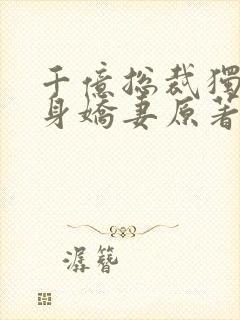 千億总裁獨
身嬌妻原著
潺簪